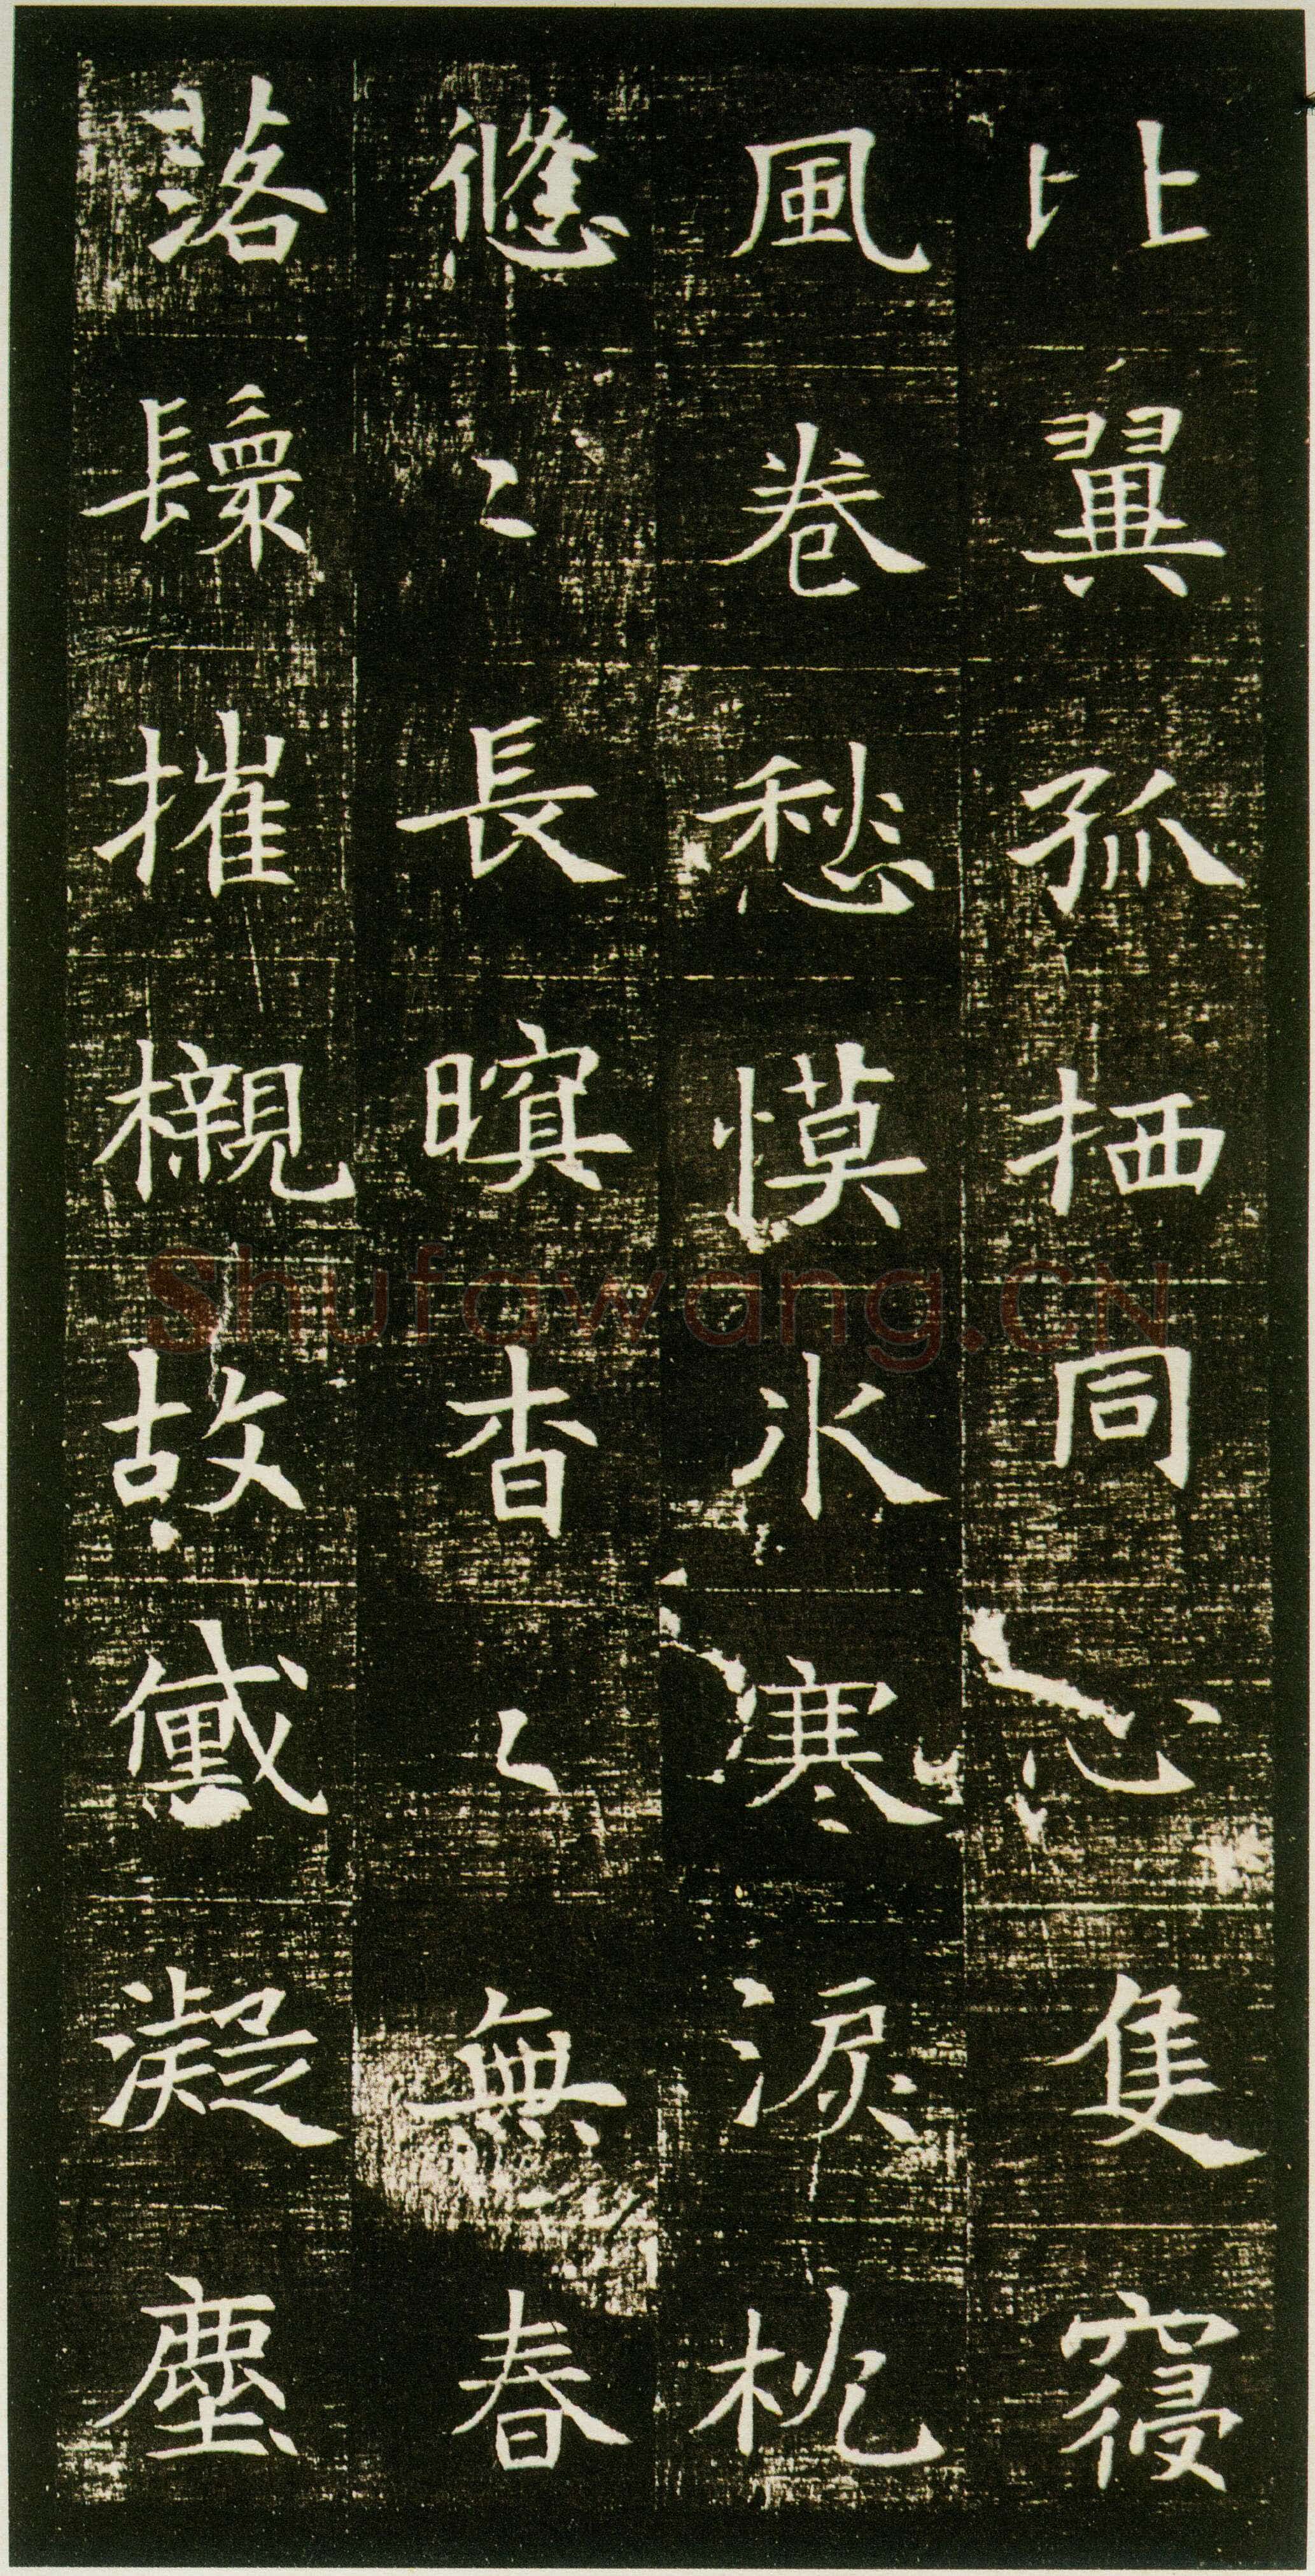 比翼孤栖同心隻寢
風卷愁慔冰寒淚枕
悠〻長暝杳〻無春
落鬟摧櫬故黛凝塵
Shufawang.CN